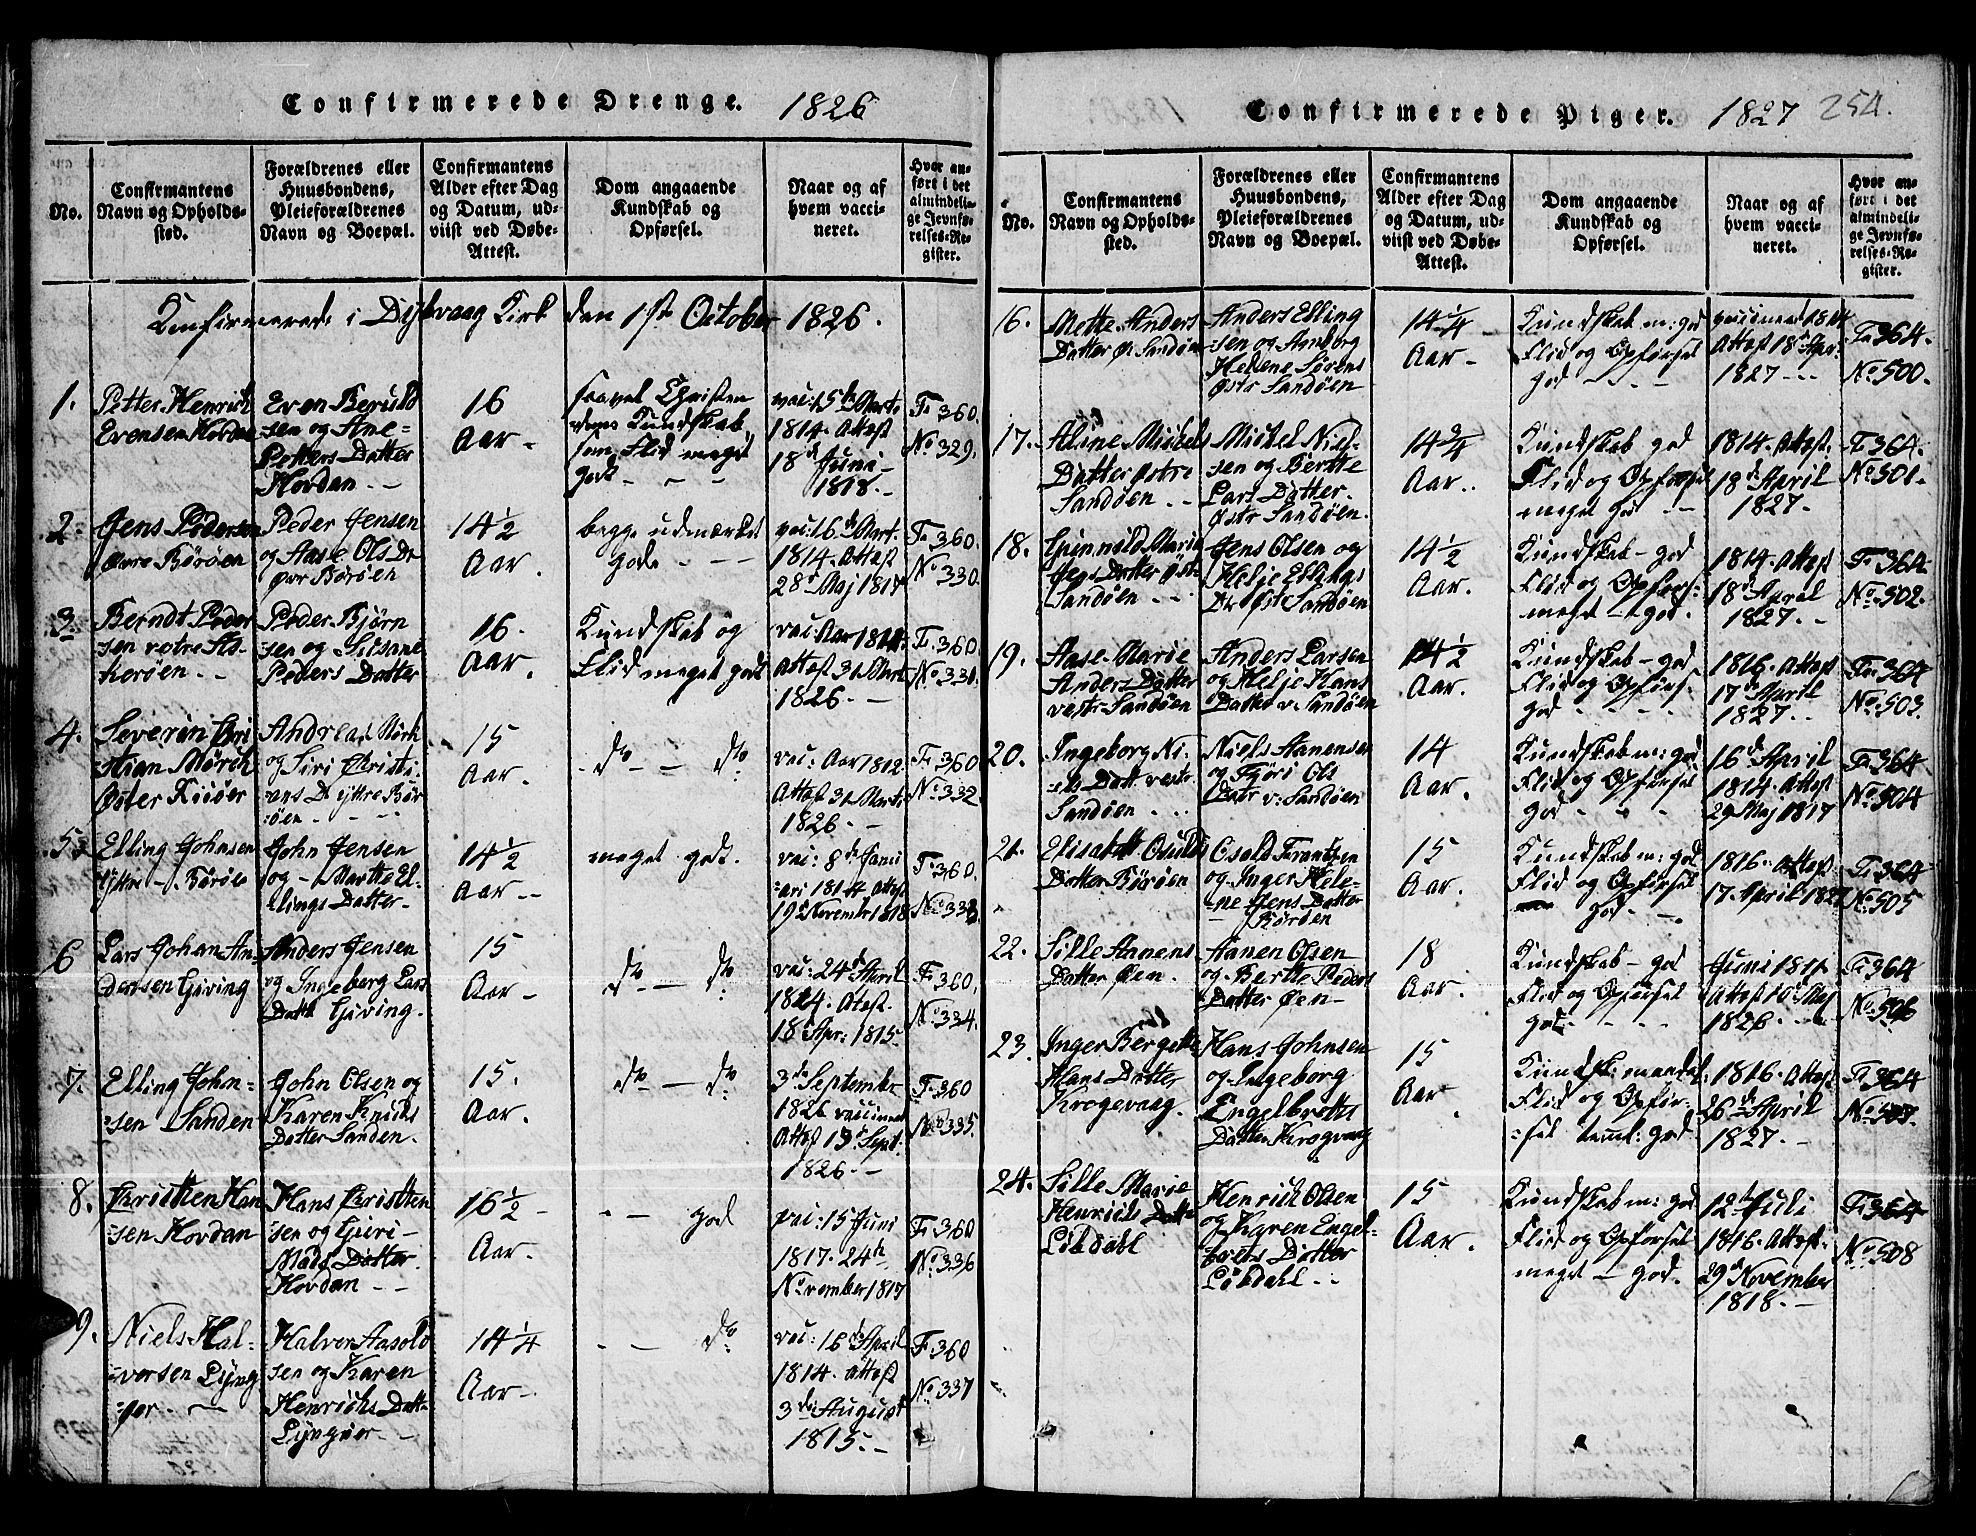 Confirmerede Drenge. 1826
No.
Confirmantens
Navn og Opholds-
sted.
Forældrenes eller
Huusbondens,
Pleieforældrenes
Navn og Boepæl.
Confirmantens
Alder efter Dag
og Datum, ud-
viist ved Døbe-
Attest.
Dom angaaende
Kundskab og
Opførsel.
Naar og af
hvem vacci-
neret.
Hvor an-
ført i det
almindeli-
ge Jevnfø-
relses-Re-
gister.
Confirmerede i Dybvaag Kirk den 1ste October 1826.
1.
Petter Henrich
Evensen Hordan
Even Beruld
sen og Ane
Petters Datter
Hordan
16
Aar
saavel Christen
doms Kundskab,
som Flid meget
godt
vac: 15de Marti
1814. Attest
18de Juni
1818.
F. 360.
No 329.
2.
Jens Pedersen
øvre Böröen
Peder Jensen
og Aase Ols Dr
øvr Böröen
14½
Aar.
begge udmærket
gode
vac: 16de Mart.
1814. Attest
28de Maj 1817
F. 360.
No 330.
3.
Berndt Peder
sen vestre As-
keröen
Peder Björn
sen og
Peders Datter
16.
Aar.
Kundskab og
Flid meget godt
vac: Aar 1814.
Attest 31 Marti
1826.
F. 360.
No 331.
4.
Severin Cri
stian Mörch
Andreas Mörk
og Siri Christi
ans D yttre Bör
öen
15
Aar.
do — do
vac: Aar 1812.
Attest 31 Marti
1826.
F. 360
No 332.
5.
Elling Johnsen
yttre Böröe
John Jensen
og Marthe El-
lings Datter
14½
Aar
meget godt.
vac: 8de Janu
ari 1814 Attest
19de November 1818
F. 360.
No 333.
6
Lars Johan An
dersen Giving
Anders Jensen
og Ingeborg Lars
Datt Giving.
15
Aar
do — do
vac: 24de April
1824. Attest
18 Apr: 1815
F. 360.
No 334.
7.
Elling John-
sen Sanden
John Olsen og
Karen Knuds
Datter Sanden.
15.
Aar.
do — do
3de Septembr
1826 vaccineret
Attest 13 Sept.
1826.
F. 360
No 335.
8.
Christen Han
sen Hordan
Hans Christen
sen og Guri
Mads Datter
Hordan
16½
Aar.
god
vac: 15 Juni
1817. 24de
November 1817
F. 360
No 336
9.
Niels Hal-
vorsen Lyng
ör.
Halvor Aasold
sen og Karen
Henrichs Datt
Lyngöer
14¼
Aar
do
vac: 16de April
1814. Attest
3de August
1815.
F. 360
No 337
Confirmerede Piger. 1827 254.
No.
Confirmantens
Navn og Opholds-
sted.
Forældrenes eller
Huusbondens,
Pleieforældrenes
Navn og Boepæl.
Confirmantens
Alder efter Dag
og Datum, ud-
viist ved Døbe-
Attest.
Dom angaaende
Kundskab og
Opførsel.
Naar og af
hvem vacci-
neret.
Hvor an-
ført i det
almindeli-
ge Jevnfø-
relses-Re-
gister.
16.
Mette Anders
Datter Ø. Sandöen
Anders Elling
sen og Aanborg
Helene Sörens
Östr Sandöen
14¼
Aar
Kundskab m: god
Flid og Opförsel
god
vaccineret 1814
Attest 18de Apr:
1827
F. 364.
No 500.
17.
Aline Michels
Datter Østre
Sandöen
Michel Niel-
sen og Berthe
Lars Datter.
Östr Sandöen.
14¾
Aar
Kundskab god
Flid og Opförsel
meget god
1814. Attest.
18de April
1827.
F. 364.
No 501.
18.
Gunnild Marie
Jens Datter Østr
Sandöen
Jens Olsen og
Helje Ellings
Dr Østr Sandöen
14½
Aar.
Kundskab god
Flid og Opförs-
meget god.
1814. Attest
18de April
1827.
F. 364.
No 502.
19.
Aase Marie
Anders Datter
vestr Sandöen
Anders Larsen
og Helje Hans
Datter v: Sandöen
14½
Aar.
Kundskab god
Flid og Opförs.
god
1816. Attest
17de April
1827.
F. 364
No 503.
20.
Ingeborg Ni-
els Datt vestr
Sandöen
Niels Aanensen
og Tjöri Ols
Dater v: Sandöen
14
Aar.
Kundskab m: god
Flid og Opförsel
god
16de April
1814. Attest
29 Maj 1817
F. 364
No 504
21.
Elisabet Osuld
Datter Böröen
Osold Frantzen
og Inger Hele-
ne Jens Datter
Böröen
15
Aar.
Kundskab m: god
Flid og Opförsel
god.
1816. Attest
17. April 1827
F. 364
No 505
22.
Sille Aanens
Datter Øen.
Aanen Olsen
og Berthe Peders
Datter Øen
18
Aar.
Kundskab god
Flid og Opförsel
god.
Juni 1811.
Attest 16 Maj
1826.
F. 364
No 506
23.
Inger Bergette
Hans Datter
Krogevaag.
Hans Johnsen
og Ingeborg
Engelbretts
Datter Krogvaag
15
Aar.
Kundsk: maadel:
Flid og Opför-
sel teml: god
1816. Attest
26de April
1827.
F. 364
No 507.
24.
Sille Marie
Henrichs Datt
Lökdahl
Henrich Olsen
og Karen Engel
brets Datter
Lökdahl
15
Aar.
Kundskab m: god
Flid og Opförsel
meget god.
12te Juli
1816. Attest.
29de November
1818.
F. 364
No 508